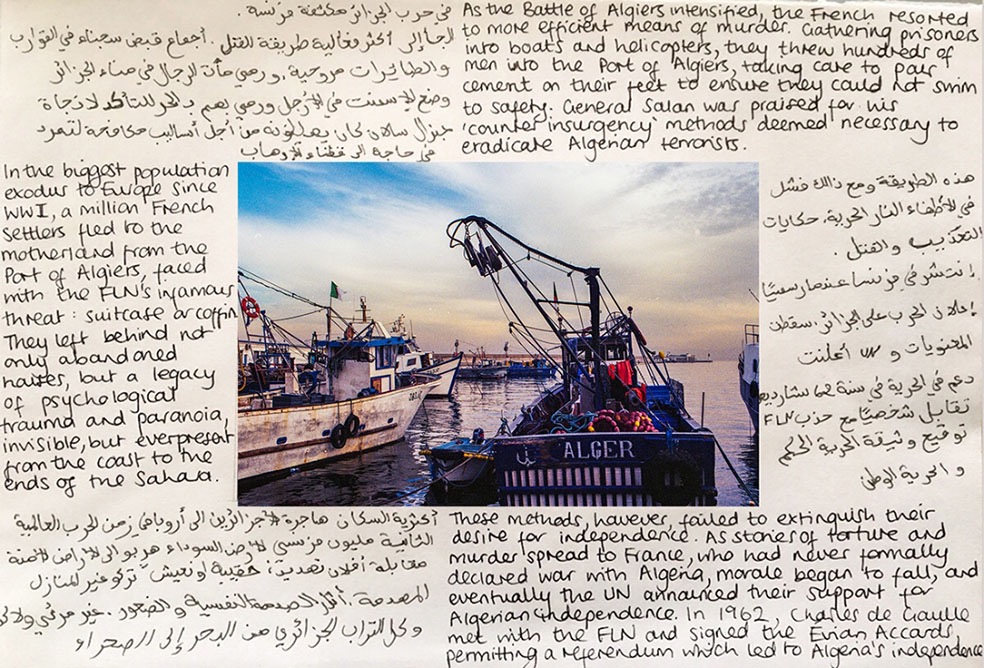 في حرب الجزائر مكثفة فرنسة.
الجأ إلى أكثر وفعالية طريقة للقتل. أجماع قبض سجناء في القوارب
والطايرات مروحية. ورمي مآت الرجال في ميناء الجزائر
وضع الاسمنت في الأرجل ورمي بهم بالبحر للتأكد لا نجاة
جينرال سالان كان من أجل أساليب مكافحة لتمرد
في حاجة إلى
As the Battle of Algiers intensified, the French resorted
to more efficient means of murder. Gathering prisoners
into boats and helicopters, they threw hundreds of
men into the Port of Algiers, taking care to pour
cement on their feet to ensure they could not swim
to safety. General Salan was praised for his
'counter insurgency' methods deemed necessary to
eradicate Algerian terrorists.
In the biggest population
exodus to Europe since
WWI, a million French
settlers fled to the
motherland from the
Port of Algiers, faced
with the FLN's infamous
threat: suitcase or coffin.
They left behind not
only abandoned
houses, but a legacy
of psychological
trauma and paranoia,
invisible, but everpresent
from the coast to the
ends of the Sahara.
ALGER
هذه الطريقة ومع ذالك فشل
في لأطفاء النار الحرية. حكايات
التعذيب والقتل.
إنتشر في فرنسا عندما رسميًا
إعلان الحرب على الجزائر. سقطت
المعنويات و UN أعلنت
دعم في الحرية في سنة 62 شارديغ
تقابل شخصيًا مع حزب FLN
توقيع وثيقة الحرية الحكم
و الحرية الوطن
أكثرية السكان هاجرة الى أروبا في زمن الحرب العالمية
الثانية مليون فرنسي السوداء هربو الى لأراض
مقابلة أفلان تهديد: حقيبة او نعيش" تركو غير المنازل
المهدمة. النفسية و. غير مرئي
وكل التراب الجزائري من البحر إلى الصحراء
These methods, however, failed to extinguish their
desire for independence. As stories of torture and
murder spread to France, who had never formally
declared war with Algeria, morale began to fall, and
eventually the UN announced their support for
Algerian independence. In 1962, Charles de Gaulle
met with the FLN and signed the Evian Accords,
permitting a referendum which led to Algeria's independence